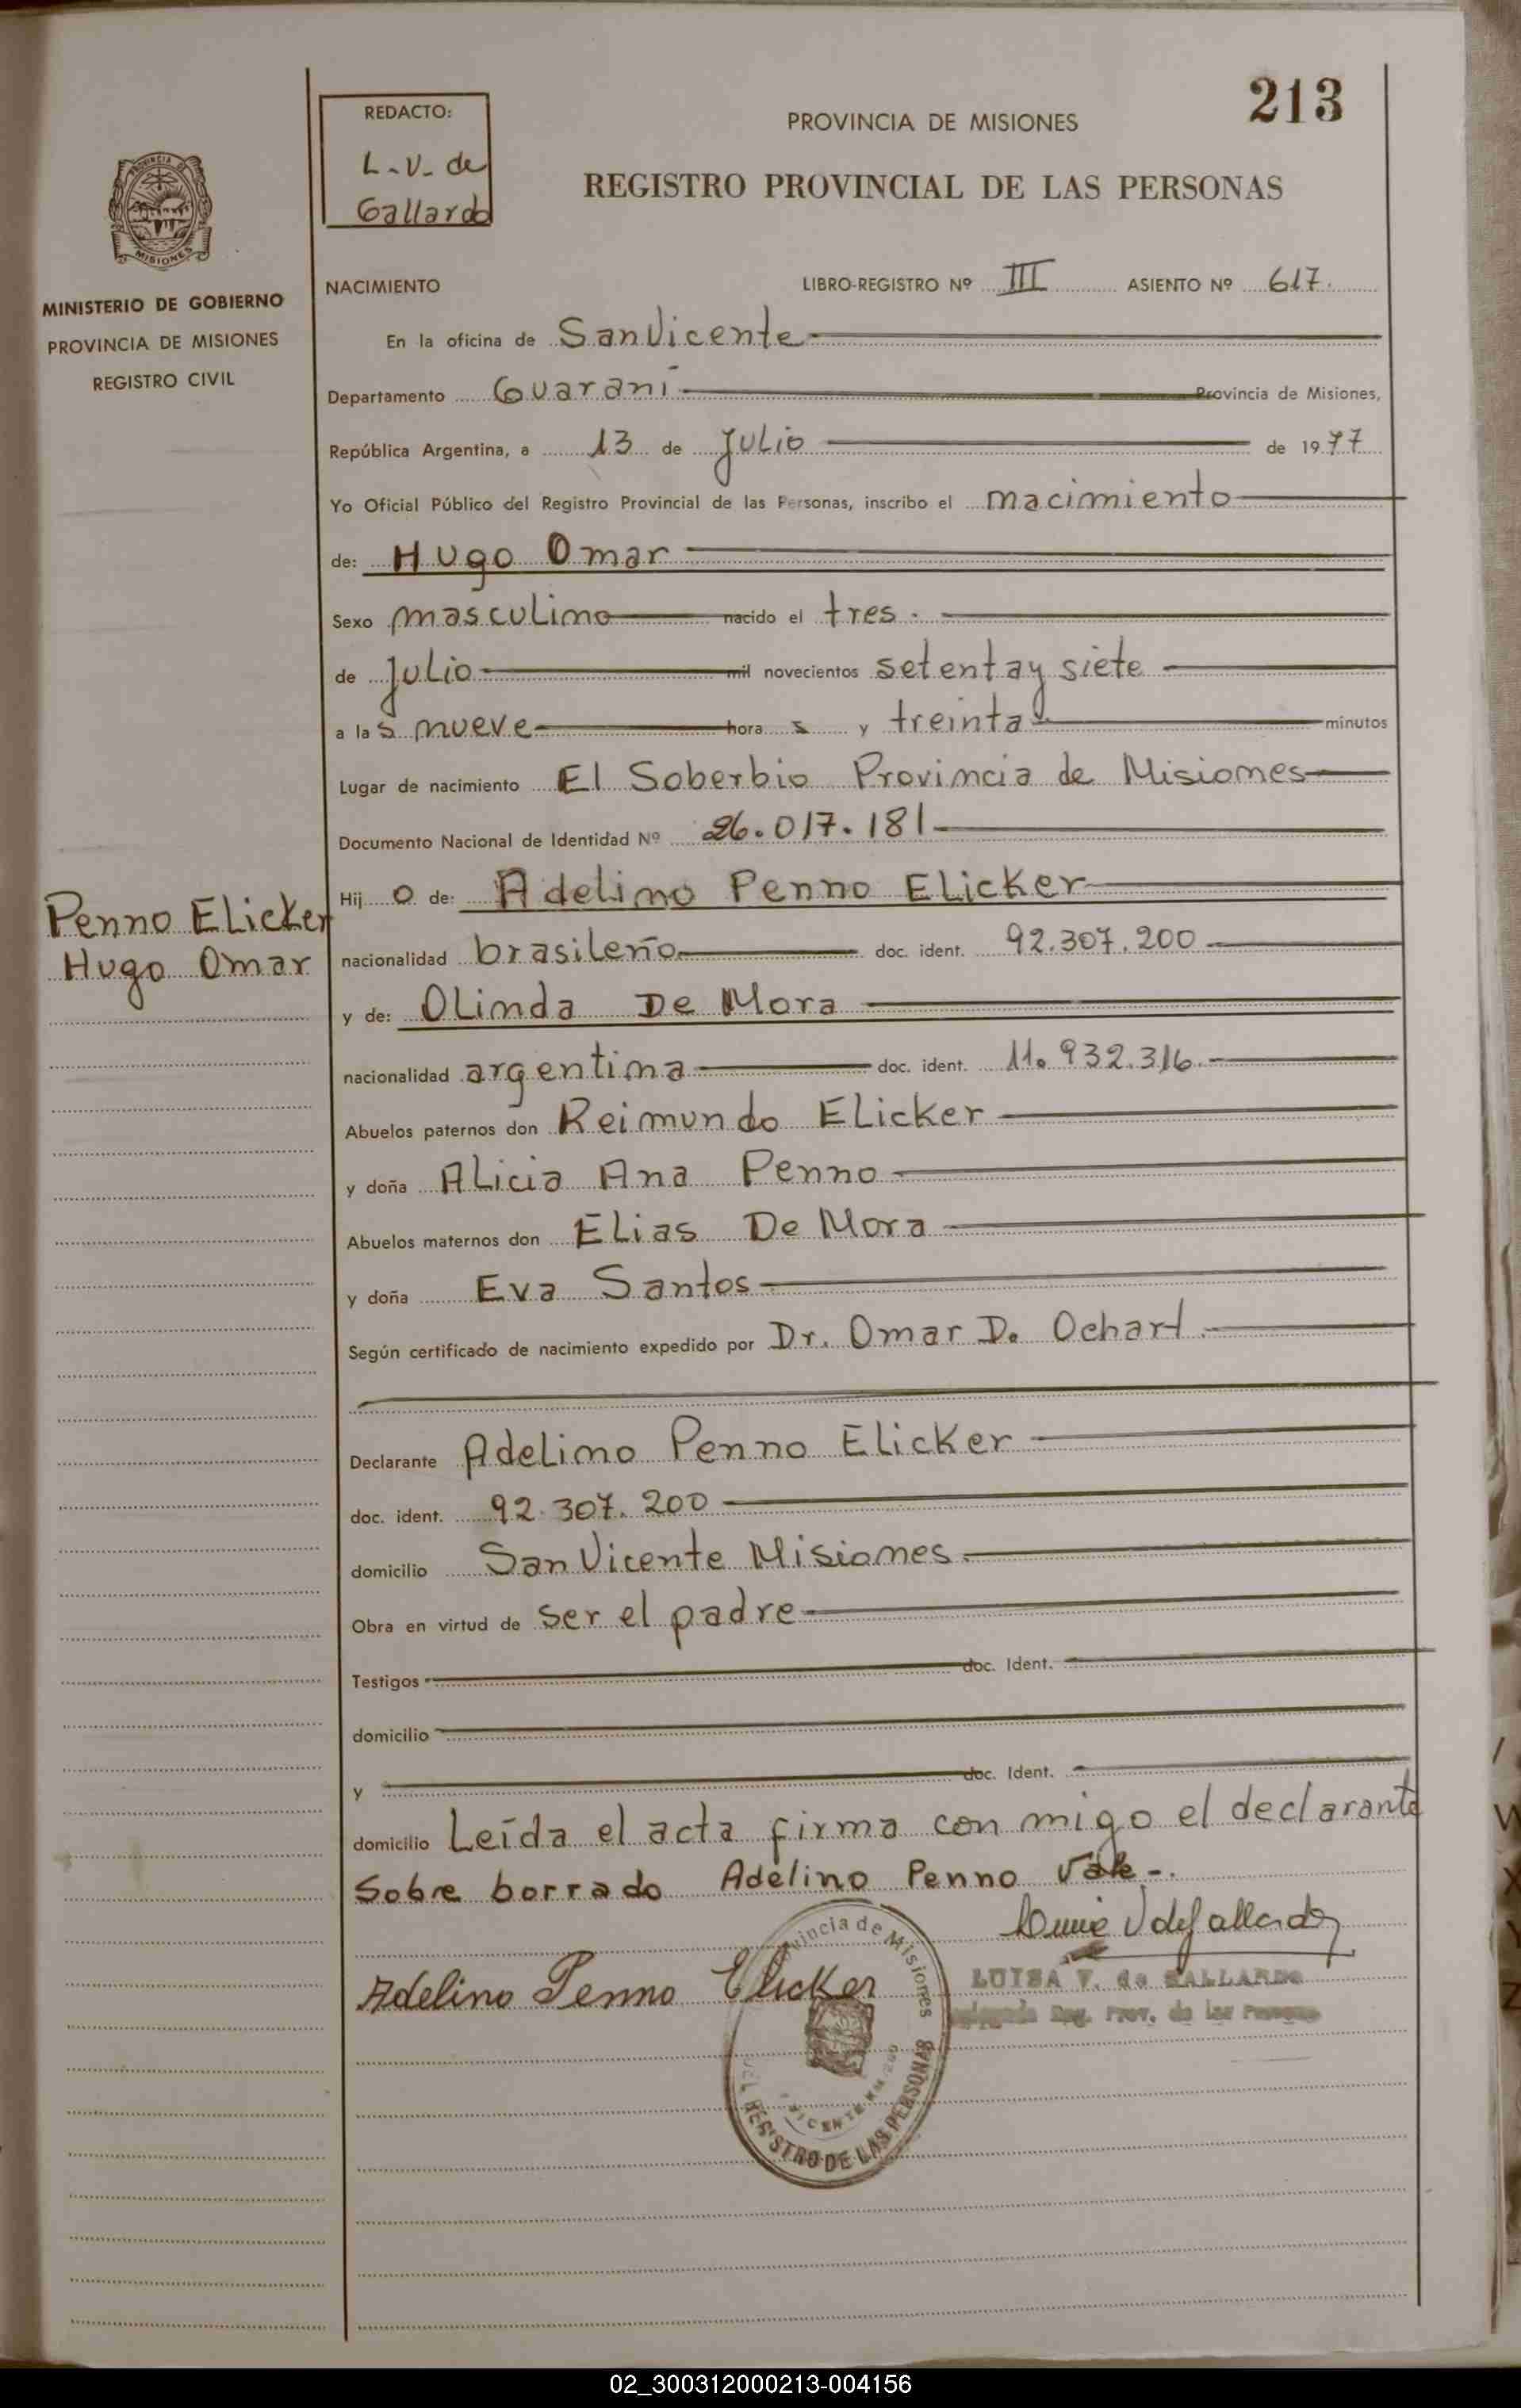 213
REDACTO:
L-V- de
Gallardo
PROVINCIA DE MISIONES
REGISTRO PROVINCIAL DE LAS PERSONAS
PROVINCIA DE
MISIONES
MINISTERIO DE GOBIERNO
PROVINCIA DE MISIONES
REGISTRO CIVIL
NACIMIENTO LIBRO-REGISTRO Nº III ASIENTO Nº 617.
En la oficina de San Vicente
Departamento Guaraní Provincia de Misiones,
República Argentina, a 13 de Julio de 1977
Yo Oficial Público del Registro Provincial de las Personas, inscribo el nacimiento
de: Hugo Omar
Sexo masculino nacido el tres.
de Julio mil novecientos setenta y siete
a las nueve horas y treinta minutos
Lugar de nacimiento El Soberbio Provincia de Misiones
Documento Nacional de Identidad Nº 26.017.181
Hijo de: Adelino Penno Elicker
Penno Elicker
Hugo Omar
nacionalidad brasileño doc. ident. 92.307.200
y de: Olinda De Mora
nacionalidad argentina doc. ident. 11.932.316.
Abuelos paternos don Reimundo Elicker
y doña Alicia Ana Penno
Abuelos maternos don Elias De Mora
y doña Eva Santos
Según certificado de nacimiento expedido por Dr. Omar D. Ochart.
Declarante Adelino Penno Elicker
doc. ident. 92.307.200
domicilio San Vicente Misiones.
Obra en virtud de ser el padre
Testigos doc. Ident.
domicilio
y doc. Ident.
domicilio Leída el acta firma con migo el declarante
Sobre borrado Adelino Penno Vale-.
Luisa V de Gallardo
Adelino Penno Elicker
LUISA V. de GALLARDO
Reg. Prov. de las Personas
Provincia de Misiones
REGISTRO DE LAS PERSONAS
02_300312000213-004156